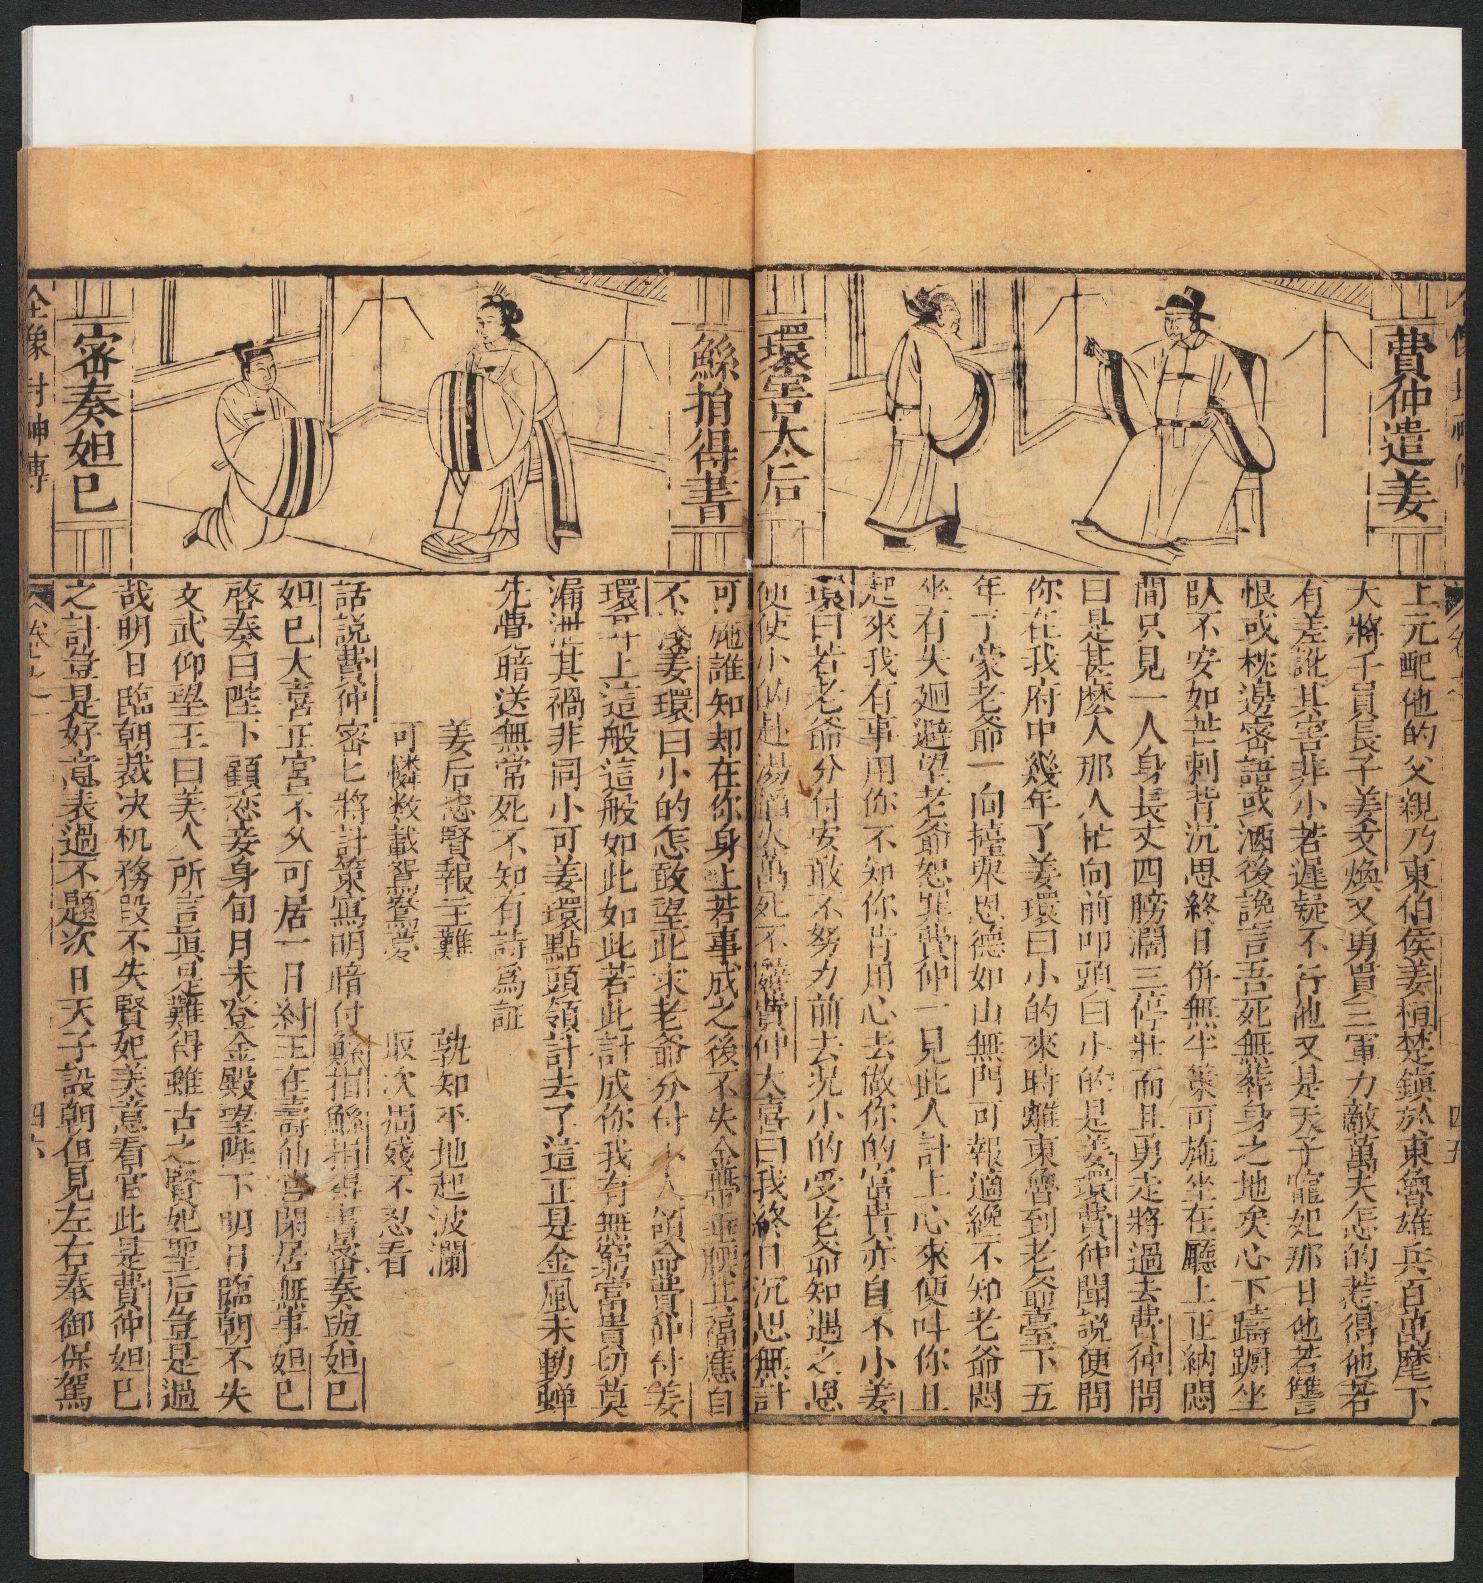 費仲遣姜
環害太后
上元配他的父親乃東伯侯姜桓楚鎭於東魯雄兵百萬麾下
大將千員長子姜文煥又勇貫三軍力敵萬夫怎的惹得他若
有差訛其害非小若遲疑不行他又是天子寵妃那日他若讐
恨或枕邊密語或酒後讒言吾死無葬身之地矣心下躊躕坐
臥不安如芒刺背沉思終日併無半策可施坐在廳上正納悶
間只見一人身長丈四膀濶三停壯而且勇走將過去費仲問
曰是甚麽人那人忙向前叩頭曰小的是姜環費仲聞説便問
你在我府中幾年了姜環曰小的來時離東魯到老爺臺下五
年了蒙老爺一向擡舉恩德如山無門可報適纔不知老爺悶
坐有失廻避望老爺恕罪費仲一見此人計上心來便叫你且
起來我有事用你不知你肯用心去做你的富貴亦自不小姜
環曰若老爺分付安敢不努力前去况小的受老爺知遇之恩
便使小的赴湯蹈火萬死不辭費仲大喜曰我終日沉思無計
鯀捐得書
密奏妲巳
可施誰知却在你身上若事成之後不失金帶垂腰其福應自
不淺姜環曰小的怎敢望此求老爺分付小人領命費仲付姜
環耳上這般這般如此如此若此計成你我有無窮富貴切莫
漏泄其禍非同小可姜環點頭領計去了這正是金風未動蟬
先覺暗送無常死不知有詩爲証
姜后忠賢報主難 孰知平地起波瀾
可憐数載鴛鴦夢 取次凋殘不忍看
話説費仲密匕將計策寫明暗付鯀捐鯀捐得書密奏與妲巳
妲巳大喜正宮不久可居一日紂王在壽仙宮閑居無事妲巳
啓奏曰陛下顧恋妾身旬月未登金殿望陛下明日臨朝不失
文武仰望王曰美人所言眞是難得雖古之賢妃聖后豈是過
哉明日臨朝裁决机務叚不失賢妃美意看官此是費仲妲巳
之計豈是好意表過不題次日天子設朝但見左右奉御保駕
全像封神傳
四五
四六